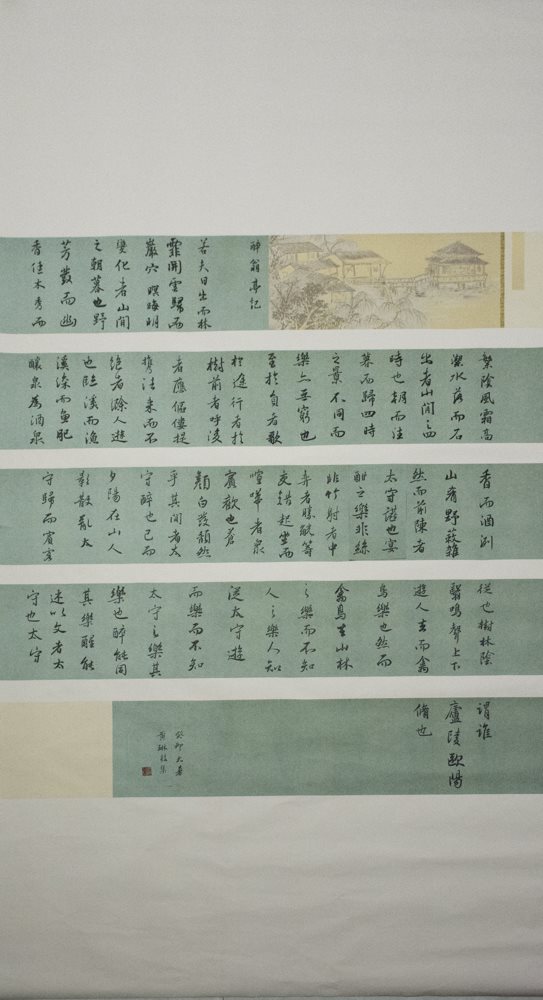 醉翁亭記
若夫日出而林
霏開雲歸而
巖穴暝晦明
變化者山間
之朝暮也野
芳發而幽
香佳木秀而
繁陰風霜高
潔水落而石
出者山間之四
時也朝而往
暮而歸四時
之景不同而
樂亦無窮也
至於負者歌
於途行者於
樹前者呼後
者應傴僂提
攜往來而不
絕者滁人遊
也臨溪而漁
溪深而魚肥
釀泉為酒泉
香而酒洌
山肴野蔌雜
然而前陳者
太守讌也宴
酣之樂非絲
非竹射者中
弈者勝觥籌
交錯起坐而
喧嘩者眾
賓歡也蒼
顏白髮頹然
乎其間者太
守醉也已而
夕陽在山人
影散亂太
守歸而賓客
從也樹林陰
翳鳴聲上下
遊人去而禽
鳥樂也然而
禽鳥知山林
之樂而不知
人之樂人知
從太守遊
而樂而不知
太守之樂其
樂也醉能同
其樂醒能
述以文者太
守也太守
謂誰
廬陵歐陽
脩也
癸卯大暑